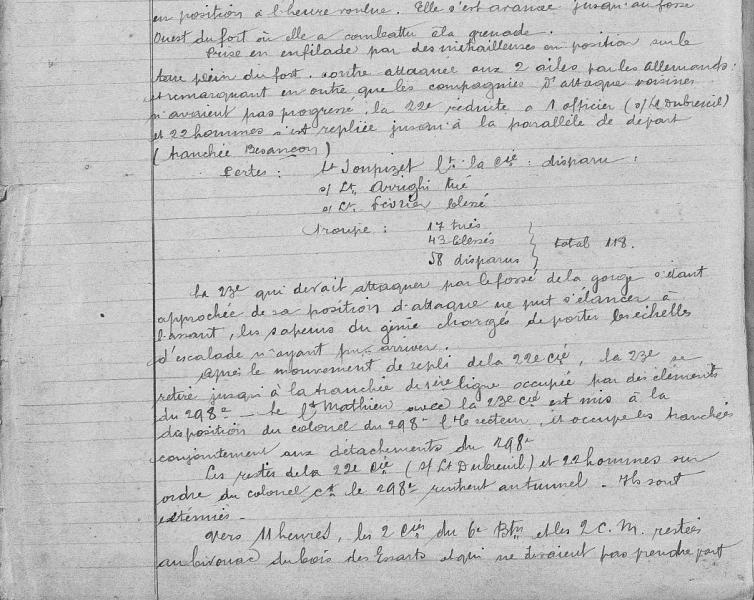 en position à l'heure voulue. Elle s'est avancée jusqu'au fossé
Ouest du fort où elle a combattu à la grenade.
Prise en enfilade par des mitrailleuses en position sur le
terre plein du fort. contre attaquée aux 2 ailes par les Allemands;
et remarquant en outre que les compagnies d'attaque voisines
n'avaient pas progressé, la 22e réduite à 1 officier (s/Lt Dubreuil)
et 22 hommes s'est repliée jusqu'à la parallèle de départ
(tranchée Besançon)
Pertes : Lt Lt la Cie : disparu :
s/ Lt. Arrighi tué
s/ Lt. Février blessé
troupe : 17 tués
43 blessés total 118.
58 disparus
La 23e qui devait attaquer par le fossé de la gorge s'étant
approchée de sa position d'attaque ne put s'élancer à
l'assaut, les sapeurs du génie chargés de porter les échelles
d'escalade n'ayant pu arriver.
Après le mouvement de repli de la 22e Cie, la 23e se
retire jusqu'à la tranchée de 1ère ligne occupée par des éléments
du 298e — Le Lt Mathieu avec la 23e Cie est mis à la
disposition du colonel du 298e secteur, il occupe les tranchées
conjointement aux détachements du 298e
Les restes de la 22e Cie (s/Lt Dubreuil) et 22 hommes sur
ordre du colonel Ct le 298e rentrent au tunnel. Ils sont
exténués.
Vers 11 heures, les 2 Cies du 6e Btn et les 2 C.M. restées
au bivouac du bois des Essarts et qui ne devaient pas prendre part